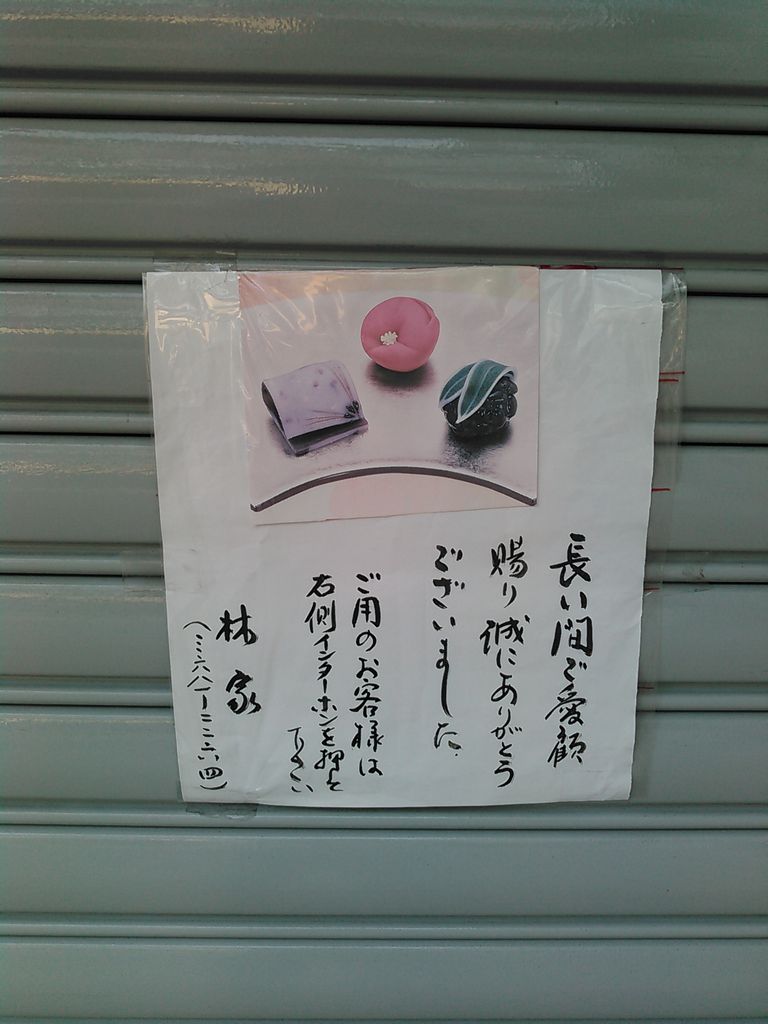 長い間ご愛顧
賜り誠にありがとう
ございました.
ご用のお客様は
右側インターホンを押して
下さい
林家
(三三六八ー二二六四)